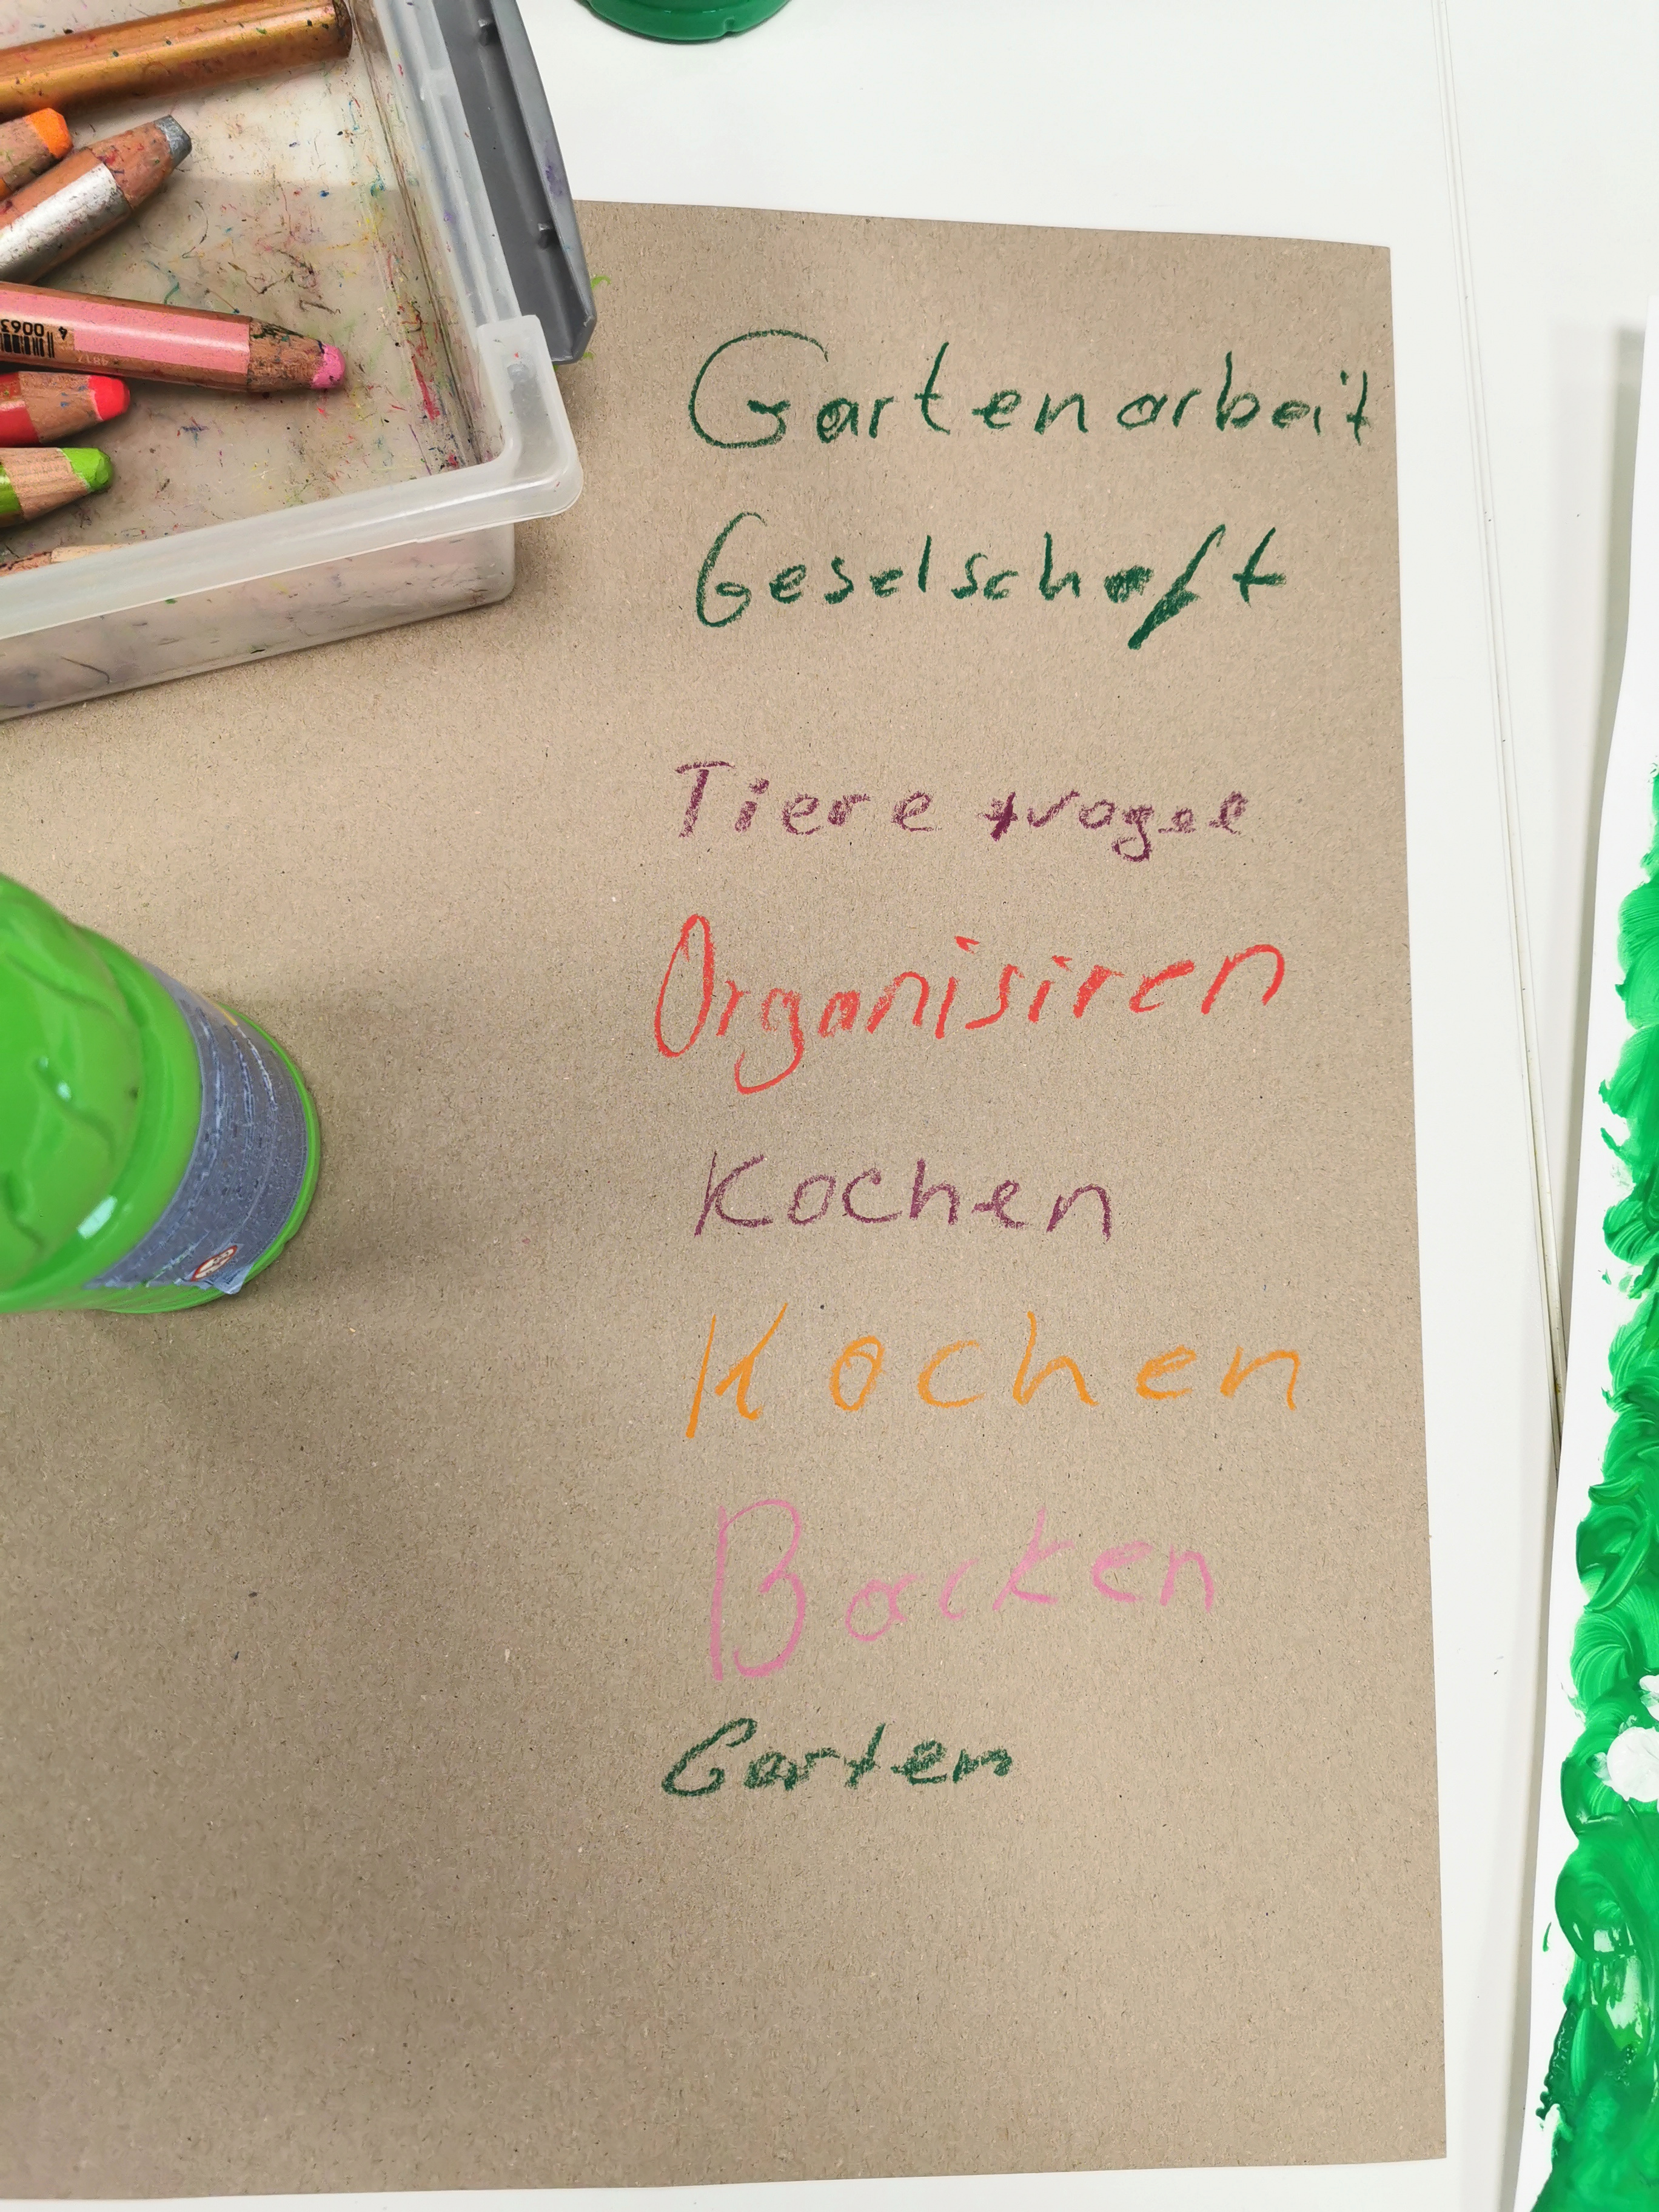 Gartenarbeit
Geselschaft
Tiere + vogel
Organisiren
Kochen
Kochen
Backen
Garten